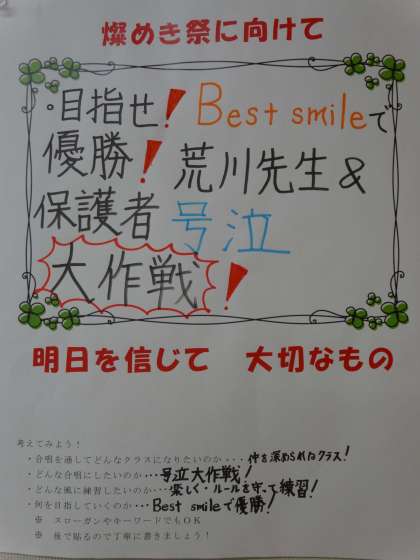 燦めき祭に向けて
・目指せ！Best smileで
優勝！荒川先生&
保護者 号泣
大作戦！
明日を信じて 大切なもの
考えてみよう！
・合唱を通してどんなクラスになりたいのか・・・仲を深められるクラス！
・どんな合唱にしたいのか・・・号泣大作戦！
・どんな風に練習したいのか・・・楽しく・ルールを守って練習！
・何を目指していくのか・・・Best smileで優勝！
※ スローガンやキーワードでもOK
※ 後で貼るので丁寧に書きましょう！